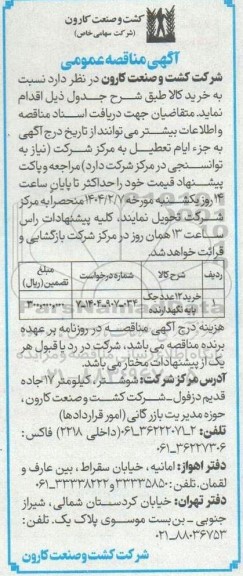 کشت و صنعت کارون
(شرکت سهامی خاص)
آگهی مناقصه عمومی
شرکت کشت و صنعت کارون در نظر دارد نسبت
به خرید کالا طبق شرح جدول ذیل اقدام
نماید. متقاضیان جهت دریافت اسناد مناقصه
و اطلاعات بیشتر می توانند از تاریخ درج آگهی
به جزء ایام تعطیل به مرکز شرکت (نیاز به
توانسنجی در مرکز شرکت دارد) مراجعه و پاکت
پیشنهاد قیمت خود را حداکثر تا پایان ساعت
۱۴ روز یکشنبه مورخه ۱۴۰۴/۲/۷ منحصرا به مرکز
شرکت تحویل نمایند، کلیه پیشنهادات راس
ساعت ۱۳ همان روز در مرکز شرکت بازگشایی و
قرائت خواهد شد.
ردیف شرح کالا شماره درخواست مبلغ تضمین (ریال)
۱ خرید ۱۲ عدد جک پایه نگهدارنده ۷-۱۴۰۴-۹۰۷-۰۳۴ ۳۰۰۰,۰۰۰,۰۰۰
هزینه درج آگهی مناقصه در روزنامه بر عهده
برنده مناقصه می باشد، شرکت در رد یا قبول هر
یک از پیشنهادات مختار می باشد.
آدرس مرکز شرکت: شوشتر، کیلومتر ۱۷ جاده
قدیم دزفول - شرکت کشت و صنعت کارون،
حوزه مدیریت بازرگانی (امور قراردادها)
تلفن: ۲-۳۶۲۲۲۰۷۱-۰۶۱ (داخلی ۲۲۱۸) فاکس:
۳۶۲۲۷۳۰۶-۰۶۱
دفتر اهواز: امانیه، خیابان سقراط، بین عارف و
لقمان. تلفن: ۳۳۳۳۵۸۵۰ و ۳۳۳۳۸۲۲۲-۰۶۱
دفتر تهران: خیابان کردستان شمالی، شیراز
جنوبی - بن بست موسوی پلاک یک. تلفن:
۸۸۰۳۶۷۵۳-۰۲۱
شرکت کشت و صنعت کارون